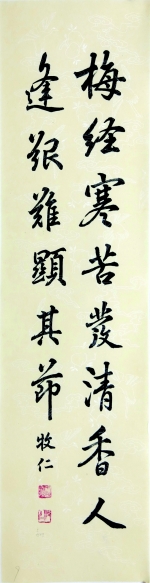 梅经寒苦發清香人
逢艰难顯其节
牧仁